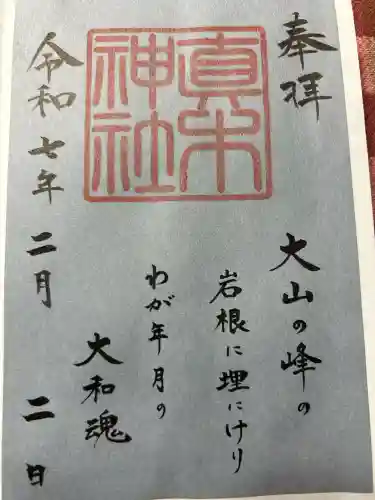 奉拝
大山の峰の
岩根に埋にけり
わが年月の
大和魂
真木神社
令和七年二月二日